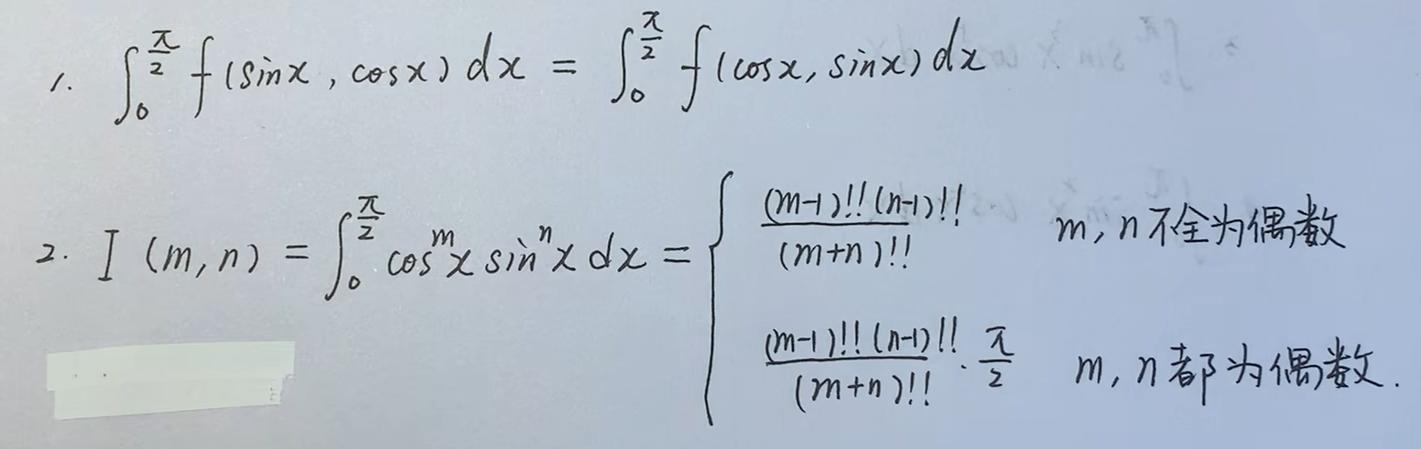 1. ∫₀^{π/2} f(sinx, cosx) dx = ∫₀^{π/2} f(cosx, sinx) dx
2. I(m,n) = ∫₀^{π/2} cos^m x sin^n x dx = { (m-1)!!(n-1)!! / (m+n)!!   m,n不全为偶数
(m-1)!!(n-1)!! / (m+n)!! · π/2   m,n都为偶数.